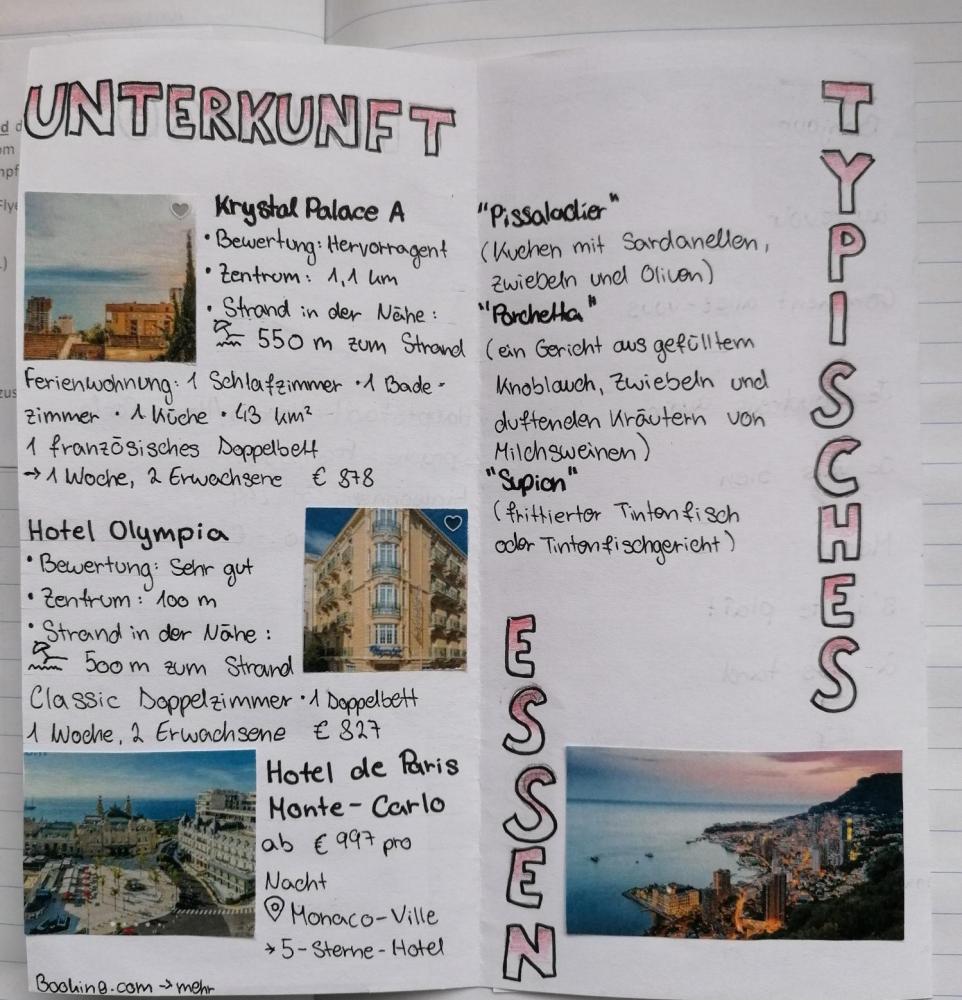 UNTERKUNFT
Krystal Palace A
• Bewertung: Hervorragent
• Zentrum: 1,1 km
• Strand in der Nähe:
550 m zum Strand
Ferienwohnung: 1 Schlafzimmer • 1 Bade-
zimmer • 1 Küche • 43 km²
1 französisches Doppelbett
→ 1 Woche, 2 Erwachsene € 878
Hotel Olympia
• Bewertung: Sehr gut
• Zentrum: 100 m
• Strand in der Nähe:
500 m zum Strand
Classic Doppelzimmer • 1 Doppelbett
1 Woche, 2 Erwachsene € 827
Hotel de Paris
Monte-Carlo
ab € 997 pro
Nacht
Monaco-Ville
→ 5-Sterne-Hotel
Booking.com → mehr
TYPISCHES
ESSEN
"Pissaladier"
(Kuchen mit Sardanellen,
zwiebeln und Oliven)
"Porchetta"
(ein Gericht aus gefülltem
Knoblauch, Zwiebeln und
duftenden Kräutern von
Milchsweinen)
"Supion"
(frittierter Tintenfisch
oder Tintenfischgericht)